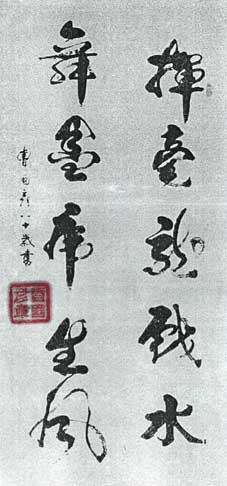 揮毫龍戲水
舞墨虎生風
八十歲書